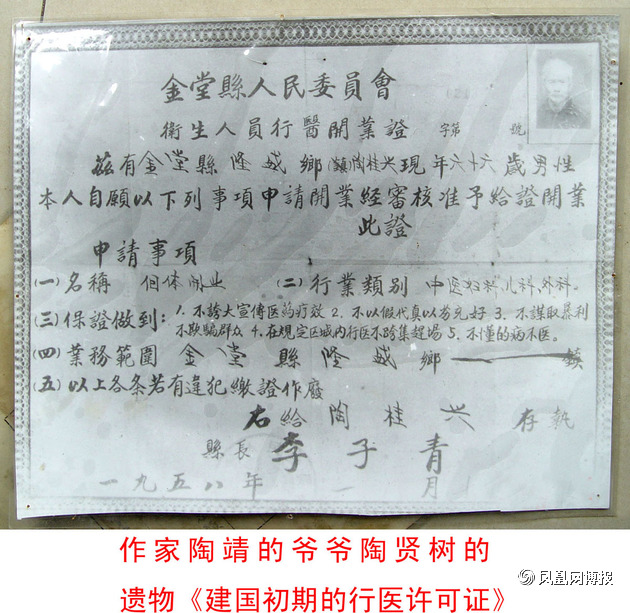 金堂縣人民委員會
衛生人員行醫開業證 字第 號
茲有金堂縣隆盛鄉(鎮)陶桂兴現年六十六歲男性
本人自願以下列事項申請開業經審核准予給證開業
此證
申請事項
(一)名稱 個体開业 (二)行業類别 中医妇科,儿科,外科。
(三)保證做到: 1.不誇大宣傳医药疗效 2.不以假代真以劣充好 3.不謀取暴利
不欺騙群众 4.在規定区域内行医不跨集趕場 5.不懂的病不医。
(四)業務範圍 金堂縣隆盛鄉 鎮
(五)以上各条若有違犯繳證作廢
右給陶桂兴存執
縣長 李子青
一九五八年 月
作家陶靖的爷爷陶贤树的
遗物《建国初期的行医许可证》
凤凰网博报